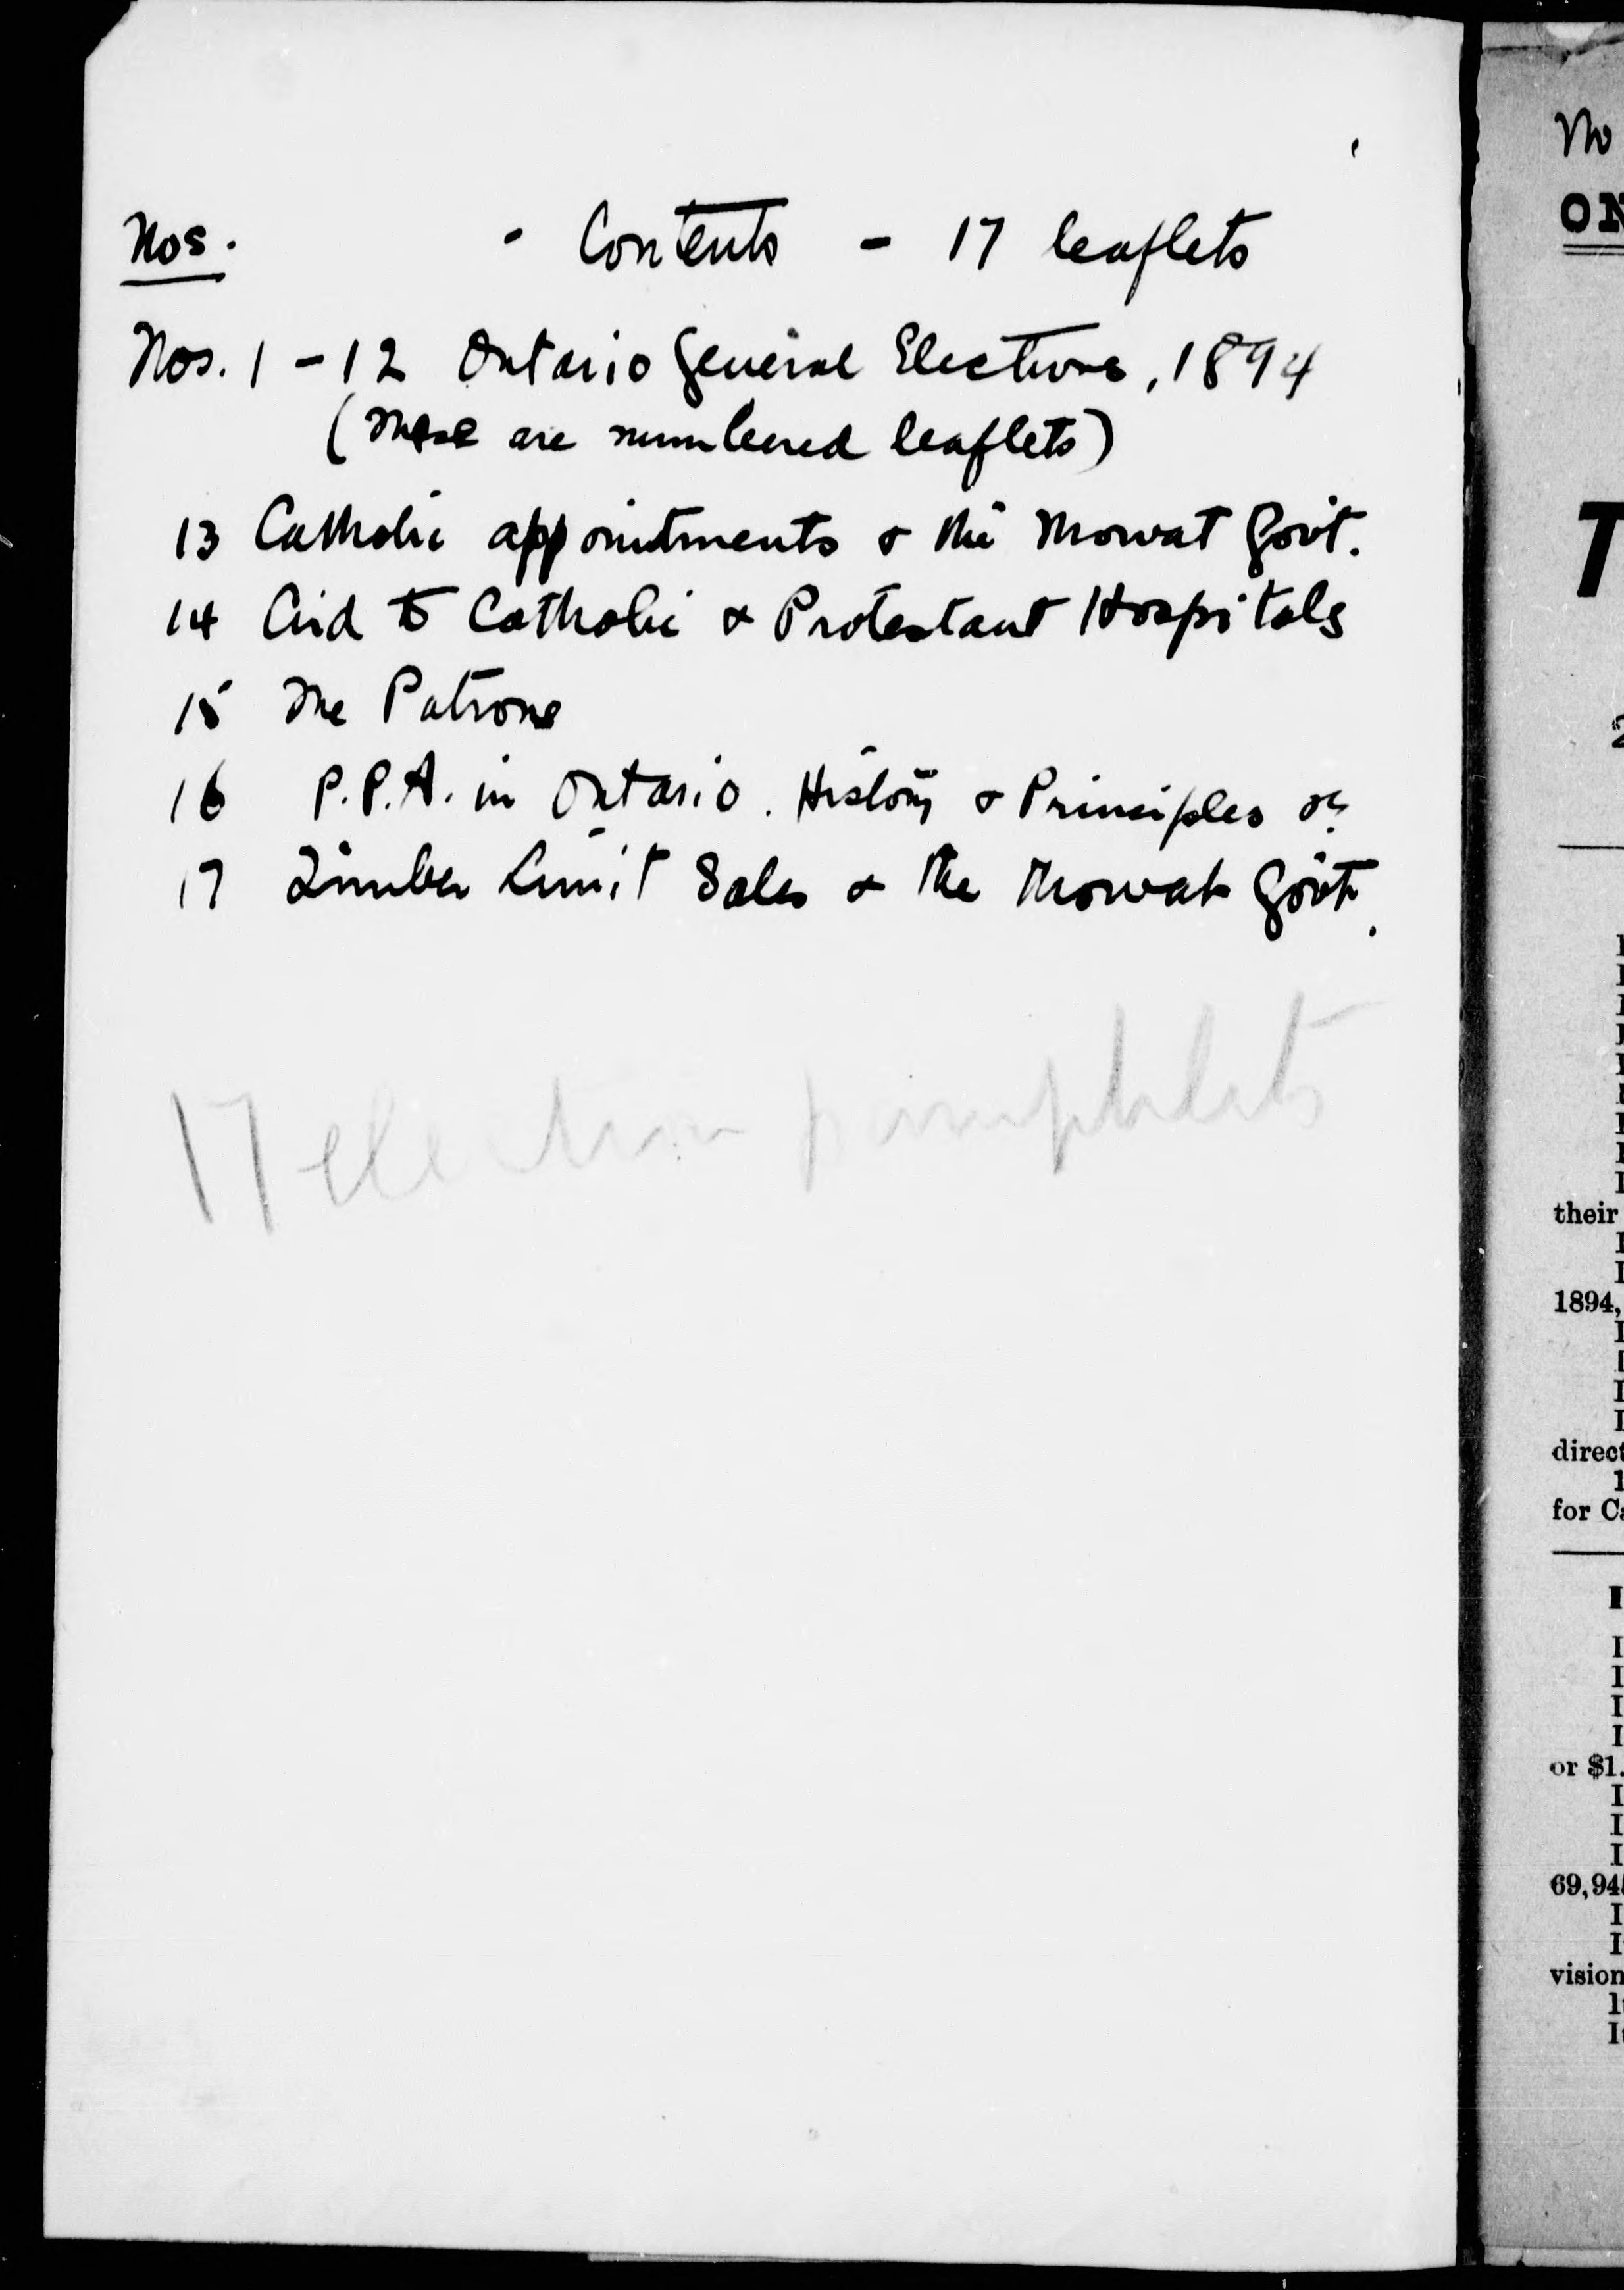 Nos. - Contents - 17 leaflets
Nos. 1-12 Ontario General Elections, 1894
(These are numbered leaflets)
13 Catholic appointments & the Mowat Govt.
14 Aid to Catholic & Protestant Hospitals
15 The Patrons
16 P.P.A. in Ontario. History & Principles of
17 Timber Limit Sales & the Mowat Govt.
17 election pamphlets
No
ON
T
2
their
1894,
direct
for Ca
or $1.
69,94
vision